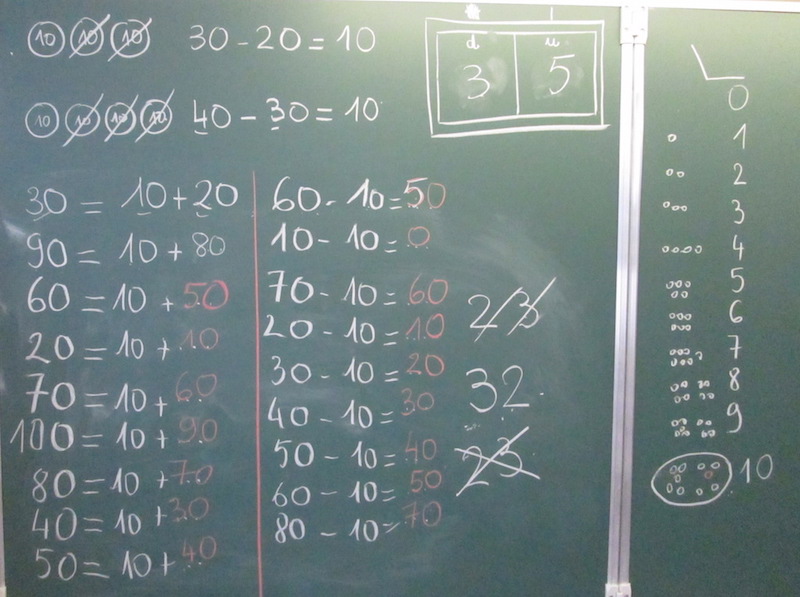 10 10 10 30 - 20 = 10
10 10 10 10 40 - 30 = 10
d u
3 5
30 = 10 + 20
90 = 10 + 80
60 = 10 + 50
20 = 10 + 10
70 = 10 + 60
100 = 10 + 90
80 = 10 + 70
40 = 10 + 30
50 = 10 + 40
60 - 10 = 50
10 - 10 = 0
70 - 10 = 60
20 - 10 = 10
30 - 10 = 20
40 - 10 = 30
50 - 10 = 40
60 - 10 = 50
80 - 10 = 70
23
32
23
0
1
2
3
4
5
6
7
8
9
10